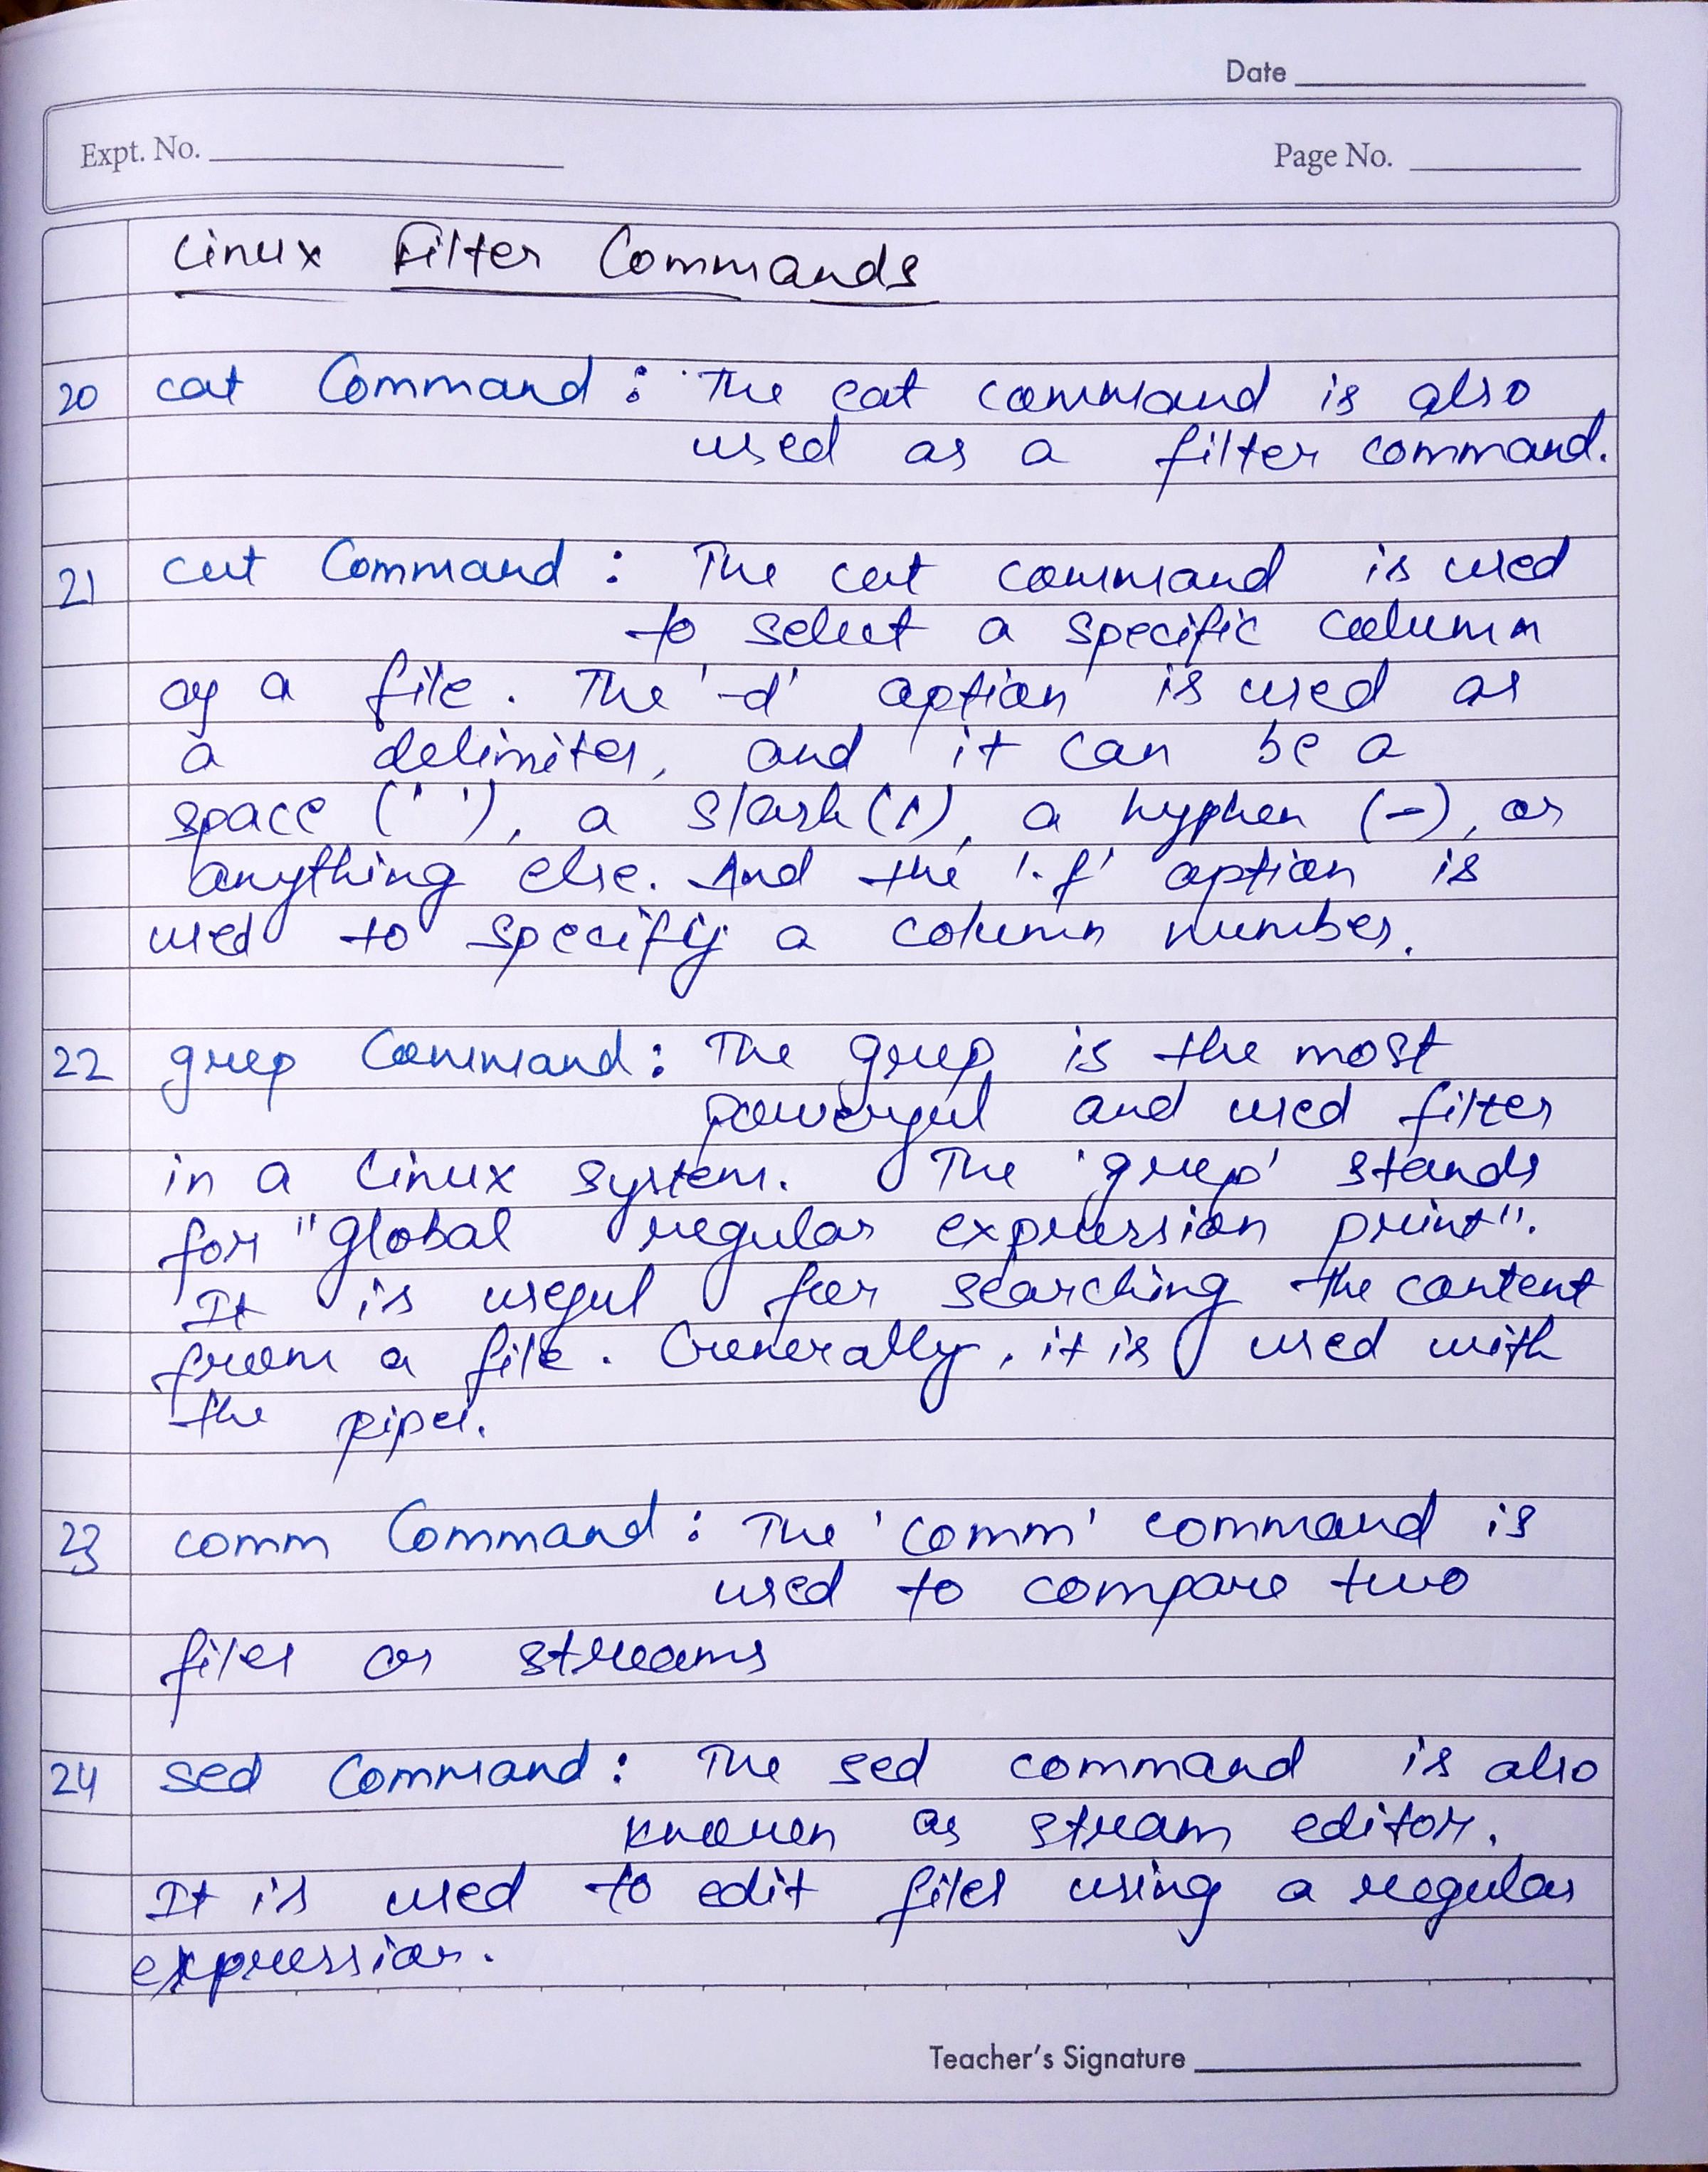 Date
Expt. No.
Page No.
Linux Filter Commands
20 cat Command : The cat command is also
used as a filter command.
21 cut Command : The cut command is used
to select a specific column
of a file. The '-d' option is used as
a delimiter, and it can be a
space (' '), a slash (/), a hyphen (-), or
anything else. And the '-f' option is
used to specify a column number.
22 grep Command : The grep is the most
powerful and used filter
in a Linux system. The 'grep' stands
for "global regular expression print".
It is useful for searching the content
from a file. Generally, it is used with
the pipe.
23 comm Command : The 'comm' command is
used to compare two
files or streams
24 sed Command : The sed command is also
known as stream editor.
It is used to edit files using a regular
expression.
Teacher's Signature